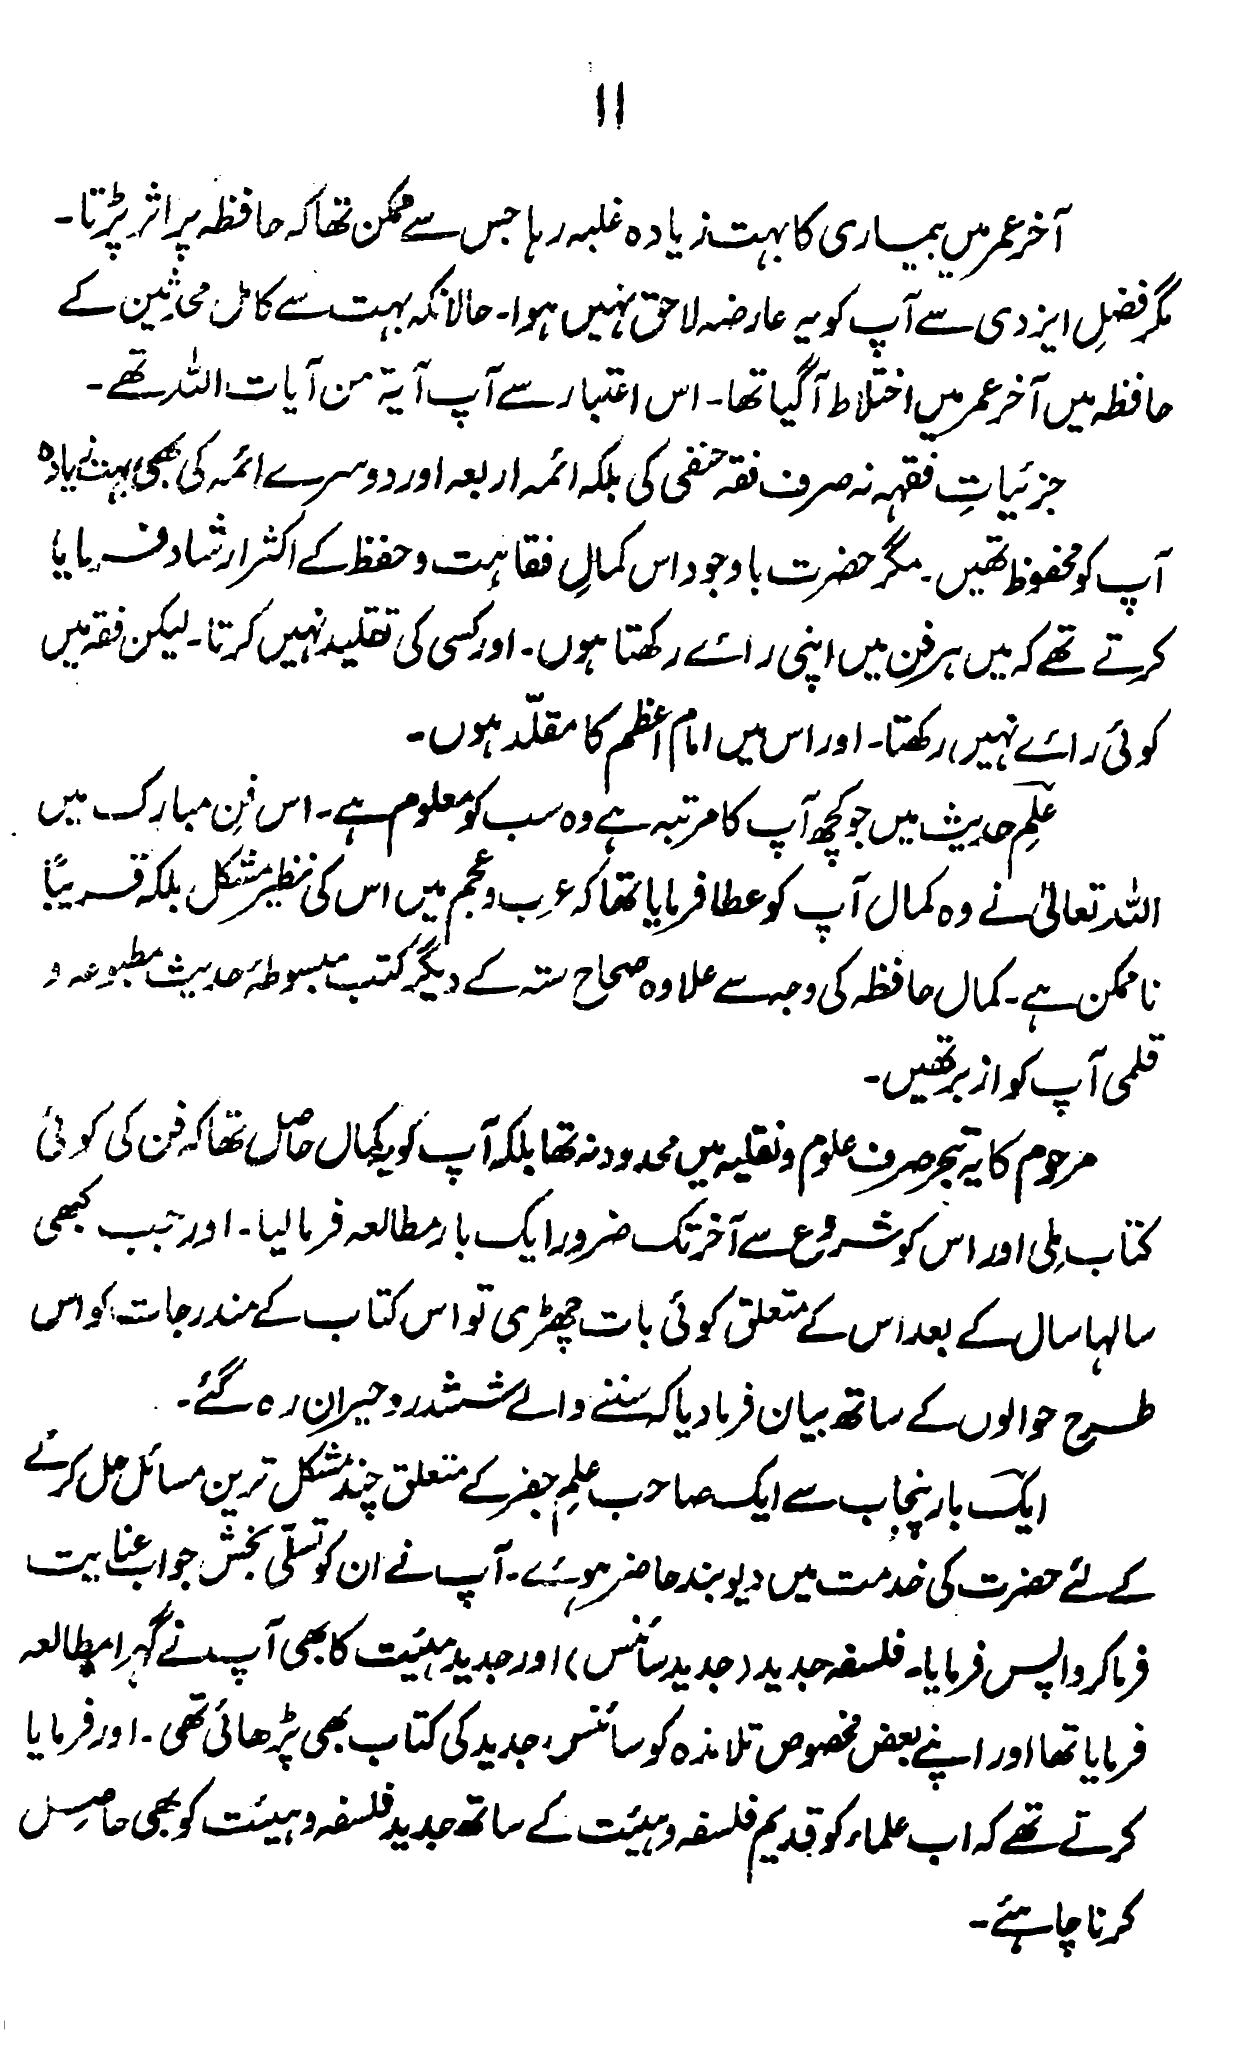 ۱۱
آخر عمر میں بیماری کا بہت زیادہ غلبہ رہا جس سے ممکن تھا کہ حافظہ پر اثر پڑتا۔
مگر فضلِ ایزدی سے آپ کو یہ عارضہ لاحق نہیں ہوا۔ حالانکہ بہت سے کامل محدثین کے
حافظہ میں آخر عمر میں اختلاط آگیا تھا۔ اس اعتبار سے آپ آیة من آیات اللہ تھے۔
جزئیاتِ فقہہ نہ صرف فقہ حنفی کی بلکہ ائمہ اربعہ اور دوسرے ائمہ کی بھی بہت زیادہ
آپ کو محفوظ تھیں۔ مگر حضرت باوجود اس کمالِ فقاہت و حفظ کے اکثر ارشاد فرمایا
کرتے تھے کہ میں ہر فن میں اپنی رائے رکھتا ہوں۔ اور کسی کی تقلید نہیں کرتا۔ لیکن فقہ میں
کوئی رائے نہیں رکھتا۔ اور اس میں امام اعظم کا مقلّد ہوں۔
علمِ حدیث میں جو کچھ آپ کا مرتبہ ہے وہ سب کو معلوم ہے۔ اس فنِ مبارک میں
اللہ تعالیٰ نے وہ کمال آپ کو عطا فرمایا تھا کہ عرب و عجم میں اس کی نظیر مشکل بلکہ قریباً
ناممکن ہے۔ کمال حافظہ کی وجہ سے علاوہ صحاح ستہ کے دیگر کتب مبسوطۂ حدیث مطبوعہ و
قلمی آپ کو ازبر تھیں۔
مرحوم کا یہ تبحر صرف علوم و نقلیہ میں محدود نہ تھا بلکہ آپ کو یہ کمال حاصل تھا کہ فن کی کوئی
کتاب ملی اور اس کو شروع سے آخر تک ضرور ایک بار مطالعہ فرمالیا۔ اور جب کبھی
سالہا سال کے بعد اس کے متعلق کوئی بات چھڑی تو اس کتاب کے مندرجات کو اس
طرح حوالوں کے ساتھ بیان فرمادیا کہ سننے والے ششدر و حیران رہ گئے۔
ایک بار پنجاب سے ایک صاحب علمِ جفر کے متعلق چند مشکل ترین مسائل حل کرنے
کے لئے حضرت کی خدمت میں دیوبند حاضر ہوئے۔ آپ نے ان کو تسلّی بخش جواب عنایت
فرما کر واپس فرمایا۔ فلسفہ جدید (جدید سائنس) اور جدید ہیئت کا بھی آپ نے گہرا مطالعہ
فرمایا تھا اور اپنے بعض مخصوص تلامذہ کو سائنس جدید کی کتاب بھی پڑھائی تھی۔ اور فرمایا
کرتے تھے کہ اب علماء کو قدیم فلسفہ و ہیئت کے ساتھ جدید فلسفہ و ہیئت کو بھی حاصل
کرنا چاہئے۔